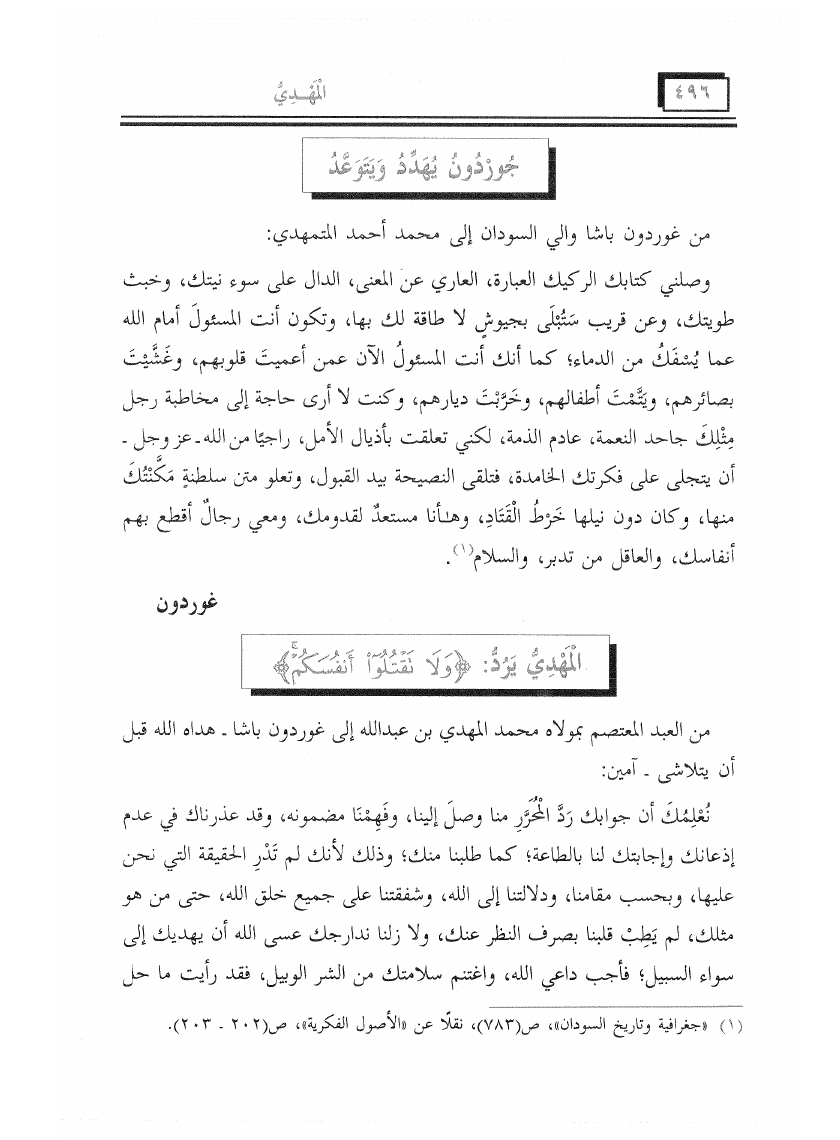 ٤٩٦
الْمَهْدِيُّ
جُورْدُونُ يُهَدِّدُ وَيَتَوَعَّدُ
من غوردون باشا والي السودان إلى محمد أحمد المتمهدي:
وصلني كتابك الركيك العبارة، العاري عن المعنى، الدال على سوء نيتك، وخبث
طويتك، وعن قريب سَتُبْلَى بجيوشٍ لا طاقة لك بها، وتكون أنت المسئولَ أمام الله
عما يُسْفَكُ من الدماء؛ كما أنك أنت المسئولُ الآن عمن أعميتَ قلوبهم، وغَشَّيْتَ
بصائرهم، ويَتَّمْتَ أطفالهم، وخَرَّبْتَ ديارهم، وكنت لا أرى حاجة إلى مخاطبة رجل
مِثْلِكَ جاحد النعمة، عادم الذمة، لكني تعلقت بأذيال الأمل، راجيًا من الله ـ عز وجل ـ
أن يتجلى على فكرتك الخامدة، فتلقى النصيحة بيد القبول، وتعلو متن سلطنةٍ مَكَّنْتُكَ
منها، وكان دون نيلها خَرْطُ الْقَتَادِ، وهأنا مستعدٌ لقدومك، ومعي رجالٌ أقطع بهم
أنفاسك، والعاقل من تدبر، والسلام(١).
غوردون
الْمَهْدِيُّ يَرُدُّ: ﴿وَلَا نَقْتُلُوٓا۟ أَنفُسَكُمْ ۚ﴾
من العبد المعتصم بمولاه محمد المهدي بن عبدالله إلى غوردون باشا ـ هداه الله قبل
أن يتلاشى ـ آمين:
نُعْلِمُكَ أن جوابك رَدَّ الْمُحَرَّرِ منا وصلَ إلينا، وفَهِمْنَا مضمونه، وقد عذرناك في عدم
إذعانك وإجابتك لنا بالطاعة؛ كما طلبنا منك؛ وذلك لأنك لم تَدْرِ الحقيقة التي نحن
عليها، وبحسب مقامنا، ودلالتنا إلى الله، وشفقتنا على جميع خلق الله، حتى من هو
مثلك، لم يَطِبْ قلبنا بصرف النظر عنك، ولا زلنا ندارجك عسى الله أن يهديك إلى
سواء السبيل؛ فأجب داعي الله، واغتنم سلامتك من الشر الوبيل، فقد رأيت ما حل
(١) «جغرافية وتاريخ السودان»، ص(٧٨٣)، نقلًا عن «الأصول الفكرية»، ص(٢٠٢ ـ ٢٠٣).